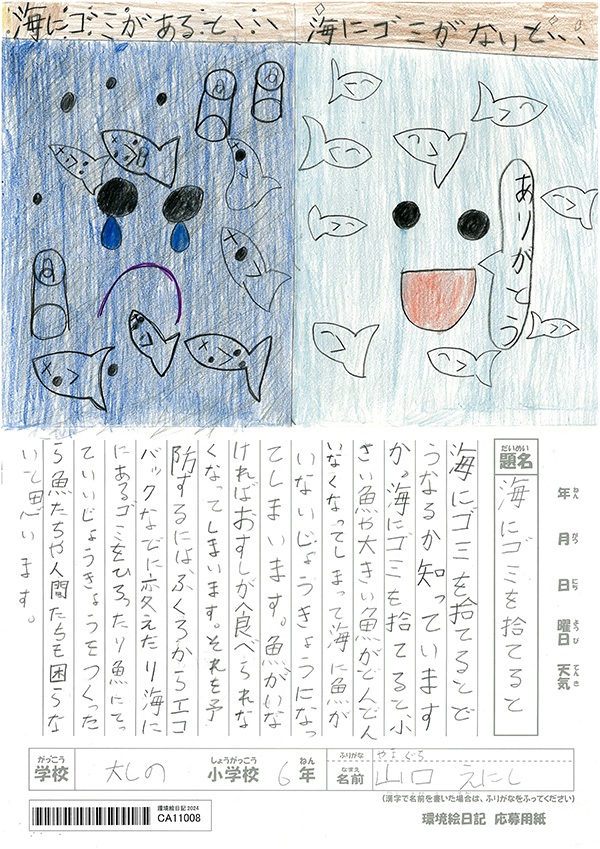 海にゴミがあると、、、
海にゴミがないと、、、
ありがとう
年 ねん
月 がつ
日 にち
曜日 ようび
天気 てんき
題名 だいめい
海にゴミを捨てると
海にゴミを捨てるとど
うなるか知っています
か。海にゴミを捨てると小
さい魚や大きい魚がどんどん
いなくなってしまって海に魚が
いないじょうきょうになっ
てしまいます。魚がいな
ければおすしが食べられな
くなってしまいます。それを予
防するにはふくろからエコ
バックなどに変えたり海に
あるゴミをひろったり魚にとっ
ていいじょうきょうをつくった
ら魚たちや人間たちも困らな
いと思います。
学校 がっこう 大しの 小学校 しょうがっこう 6年 ねん
ふりがな やまぐち
名前 なまえ 山口 えにし
(漢字で名前を書いた場合は、ふりがなをふってください)
環境絵日記2024
CA11008
環境絵日記 応募用紙